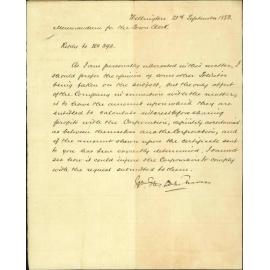 Wellington 21st September 1882.
Memorandum for the Town Clerk.
Replies to No 392.
As I am personally interested in this matter, I
should prefer the opinion of some other Solicitor
being taken on the subject, but the only effect
of the Company in connection with the matter
is to have the amount upon which they are
entitled to calculate interest before sharing
profits with the Corporation, definitely ascertained
as between themselves and the Corporation, and
if the amount shown upon the certificate sent
to you has been correctly determined, I cannot
see how it could injure the Corporation to comply
with the request submitted to them.
Travers